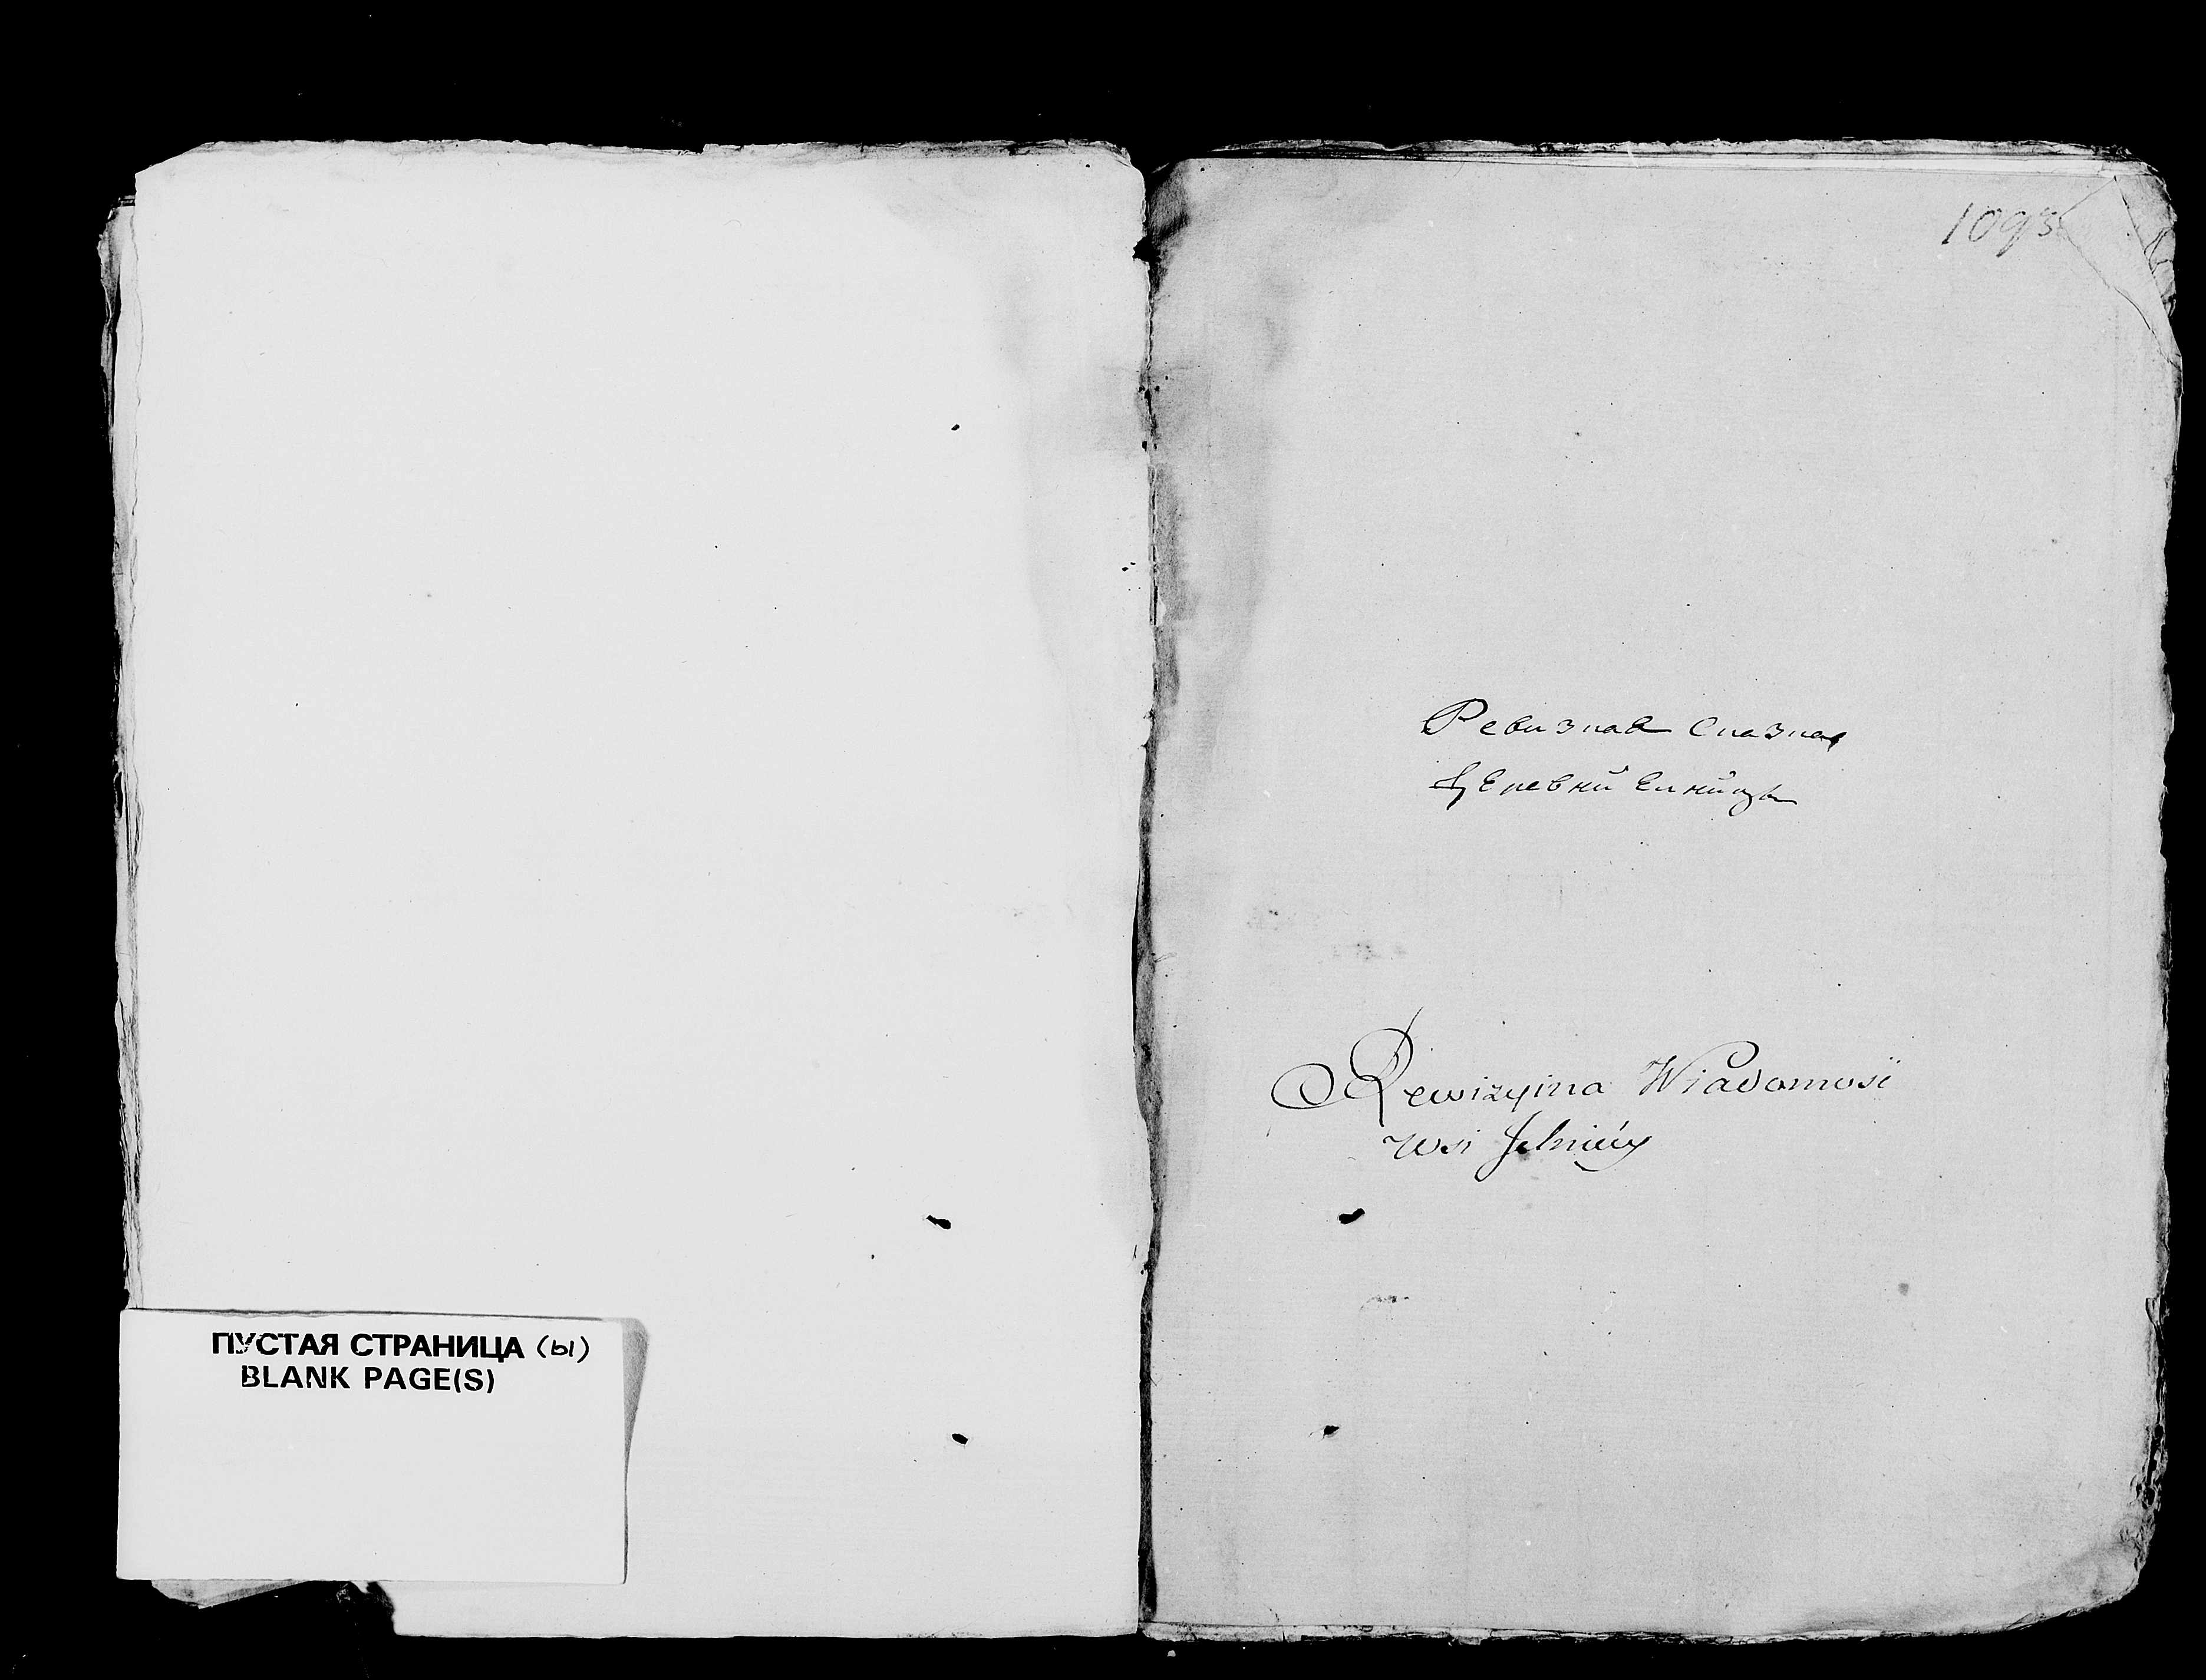 ПУСТАЯ СТРАНИЦА (ы)
BLANK PAGE(S)
1093
Ревизная Сказка
Деревни Елницы
Rewizyina Wiadomość
wsi Jelnicy